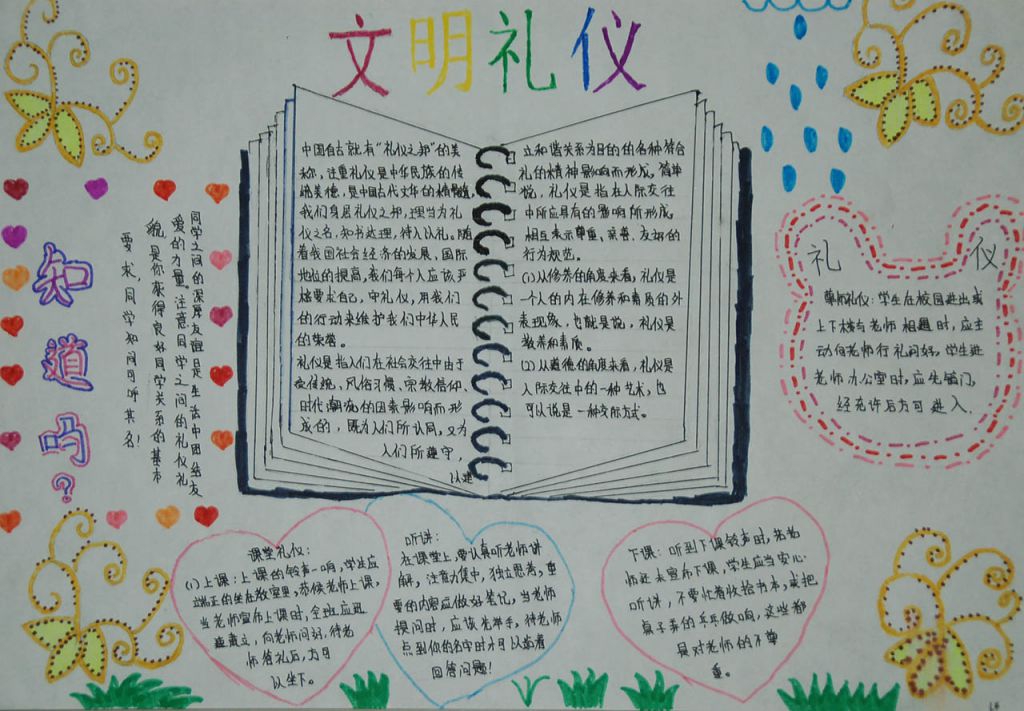 文明礼仪
中国自古就有“礼仪之邦”的美
称，注重礼仪是中华民族的传
统美德，是中国古代文年的精髓
我们身居礼仪之邦，理当为礼
仪之名，知书达理，待人以礼。随
着我国社会经济的发展、国际
地位的提高，我们每个人应该严
格要求自己，守礼仪，用我们
的行动来维护我们中华人民
的荣誉。
礼仪是指人们在社会交往中由于
受传统，风俗习惯、宗教信仰、
时代潮流的因素影响而形
成的，既为人们所认同，又为
人们所遵守，
以建
立和谐关系为目的的各种符合
礼的精神影响而形成，简单
说，礼仪是指在人际交往
中所应具有的影响所形成
相互表示尊重、亲善、友好的
行为规范。
(1)从修养的角度来看，礼仪是
一个人的内在修养和素质的外
表现象，也就是说，礼仪是
教养和素质。
(2)从道德的角度来看，礼仪是
人际交往中的一种艺术，也
可以说是一种交际方式。
知道吗？
同学之间的深厚友谊是生活中团结友
爱的力量。注意同学之间的礼仪礼
貌是你获得良好同学关系的基本
要求，同学知问可听其名！
礼仪
尊师礼仪：学生在校园进出或
上下楼与老师相遇时，应主
动向老师行礼问好，学生进
老师办公室时，应先敲门，
经允许后方可进入.
课堂礼仪：
(1)上课：上课的铃声一响，学生应
端正的坐在教室里，恭候老师上课，
当老师宣布上课时，全班应迅
速肃立，向老师问好，待老
师答礼后，方可
以坐下。
听讲：
在课堂上，要认真听老师讲
解，注意力集中，独立思考，重
要的内容应做好笔记，当老师
提问时，应该先举手，待老师
点到你的名字时才可以站着
回答问题！
下课：听到下课铃声时，若老
师还未宣布下课，学生应当安心
听讲，不要忙着收拾书本，或把
桌子弄的乒乓做响，这些都
是对老师的不尊
重。